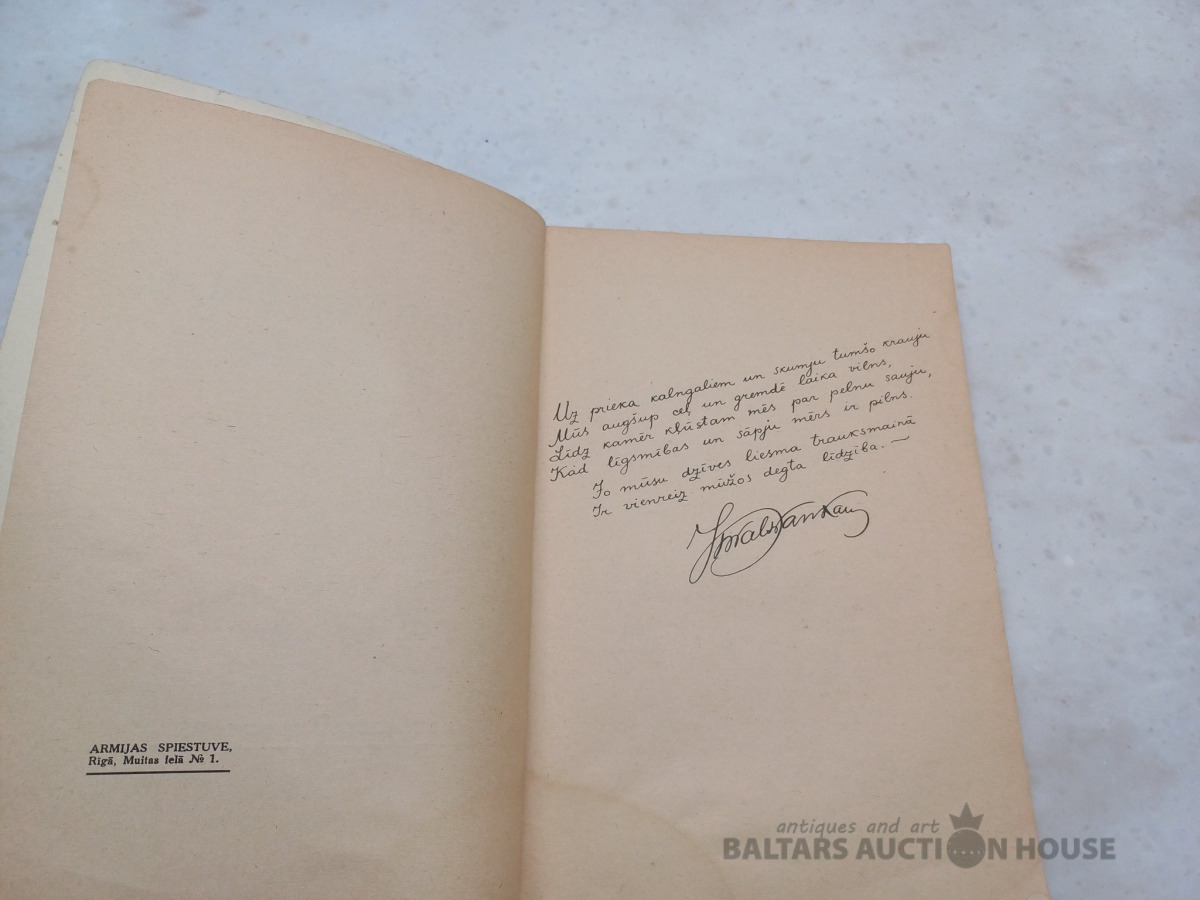 ARMIJAS SPIESTUVE,
Rīgā, Muitas ielā № 1.
Uz prieka kalngaliem un skumju tumšo krauju
Mūs augšup ceļ un gremdē laika vilns,
Līdz kamēr kļūstam mēs par pelnu sauju,
Kad līgsmības un sāpju mērs ir pilns.
Jo mūsu dzīves liesma trauksmainā
Ir vienreiz mūžos degta līdzība. —
antiques and art
BALTARS AUCTION HOUSE